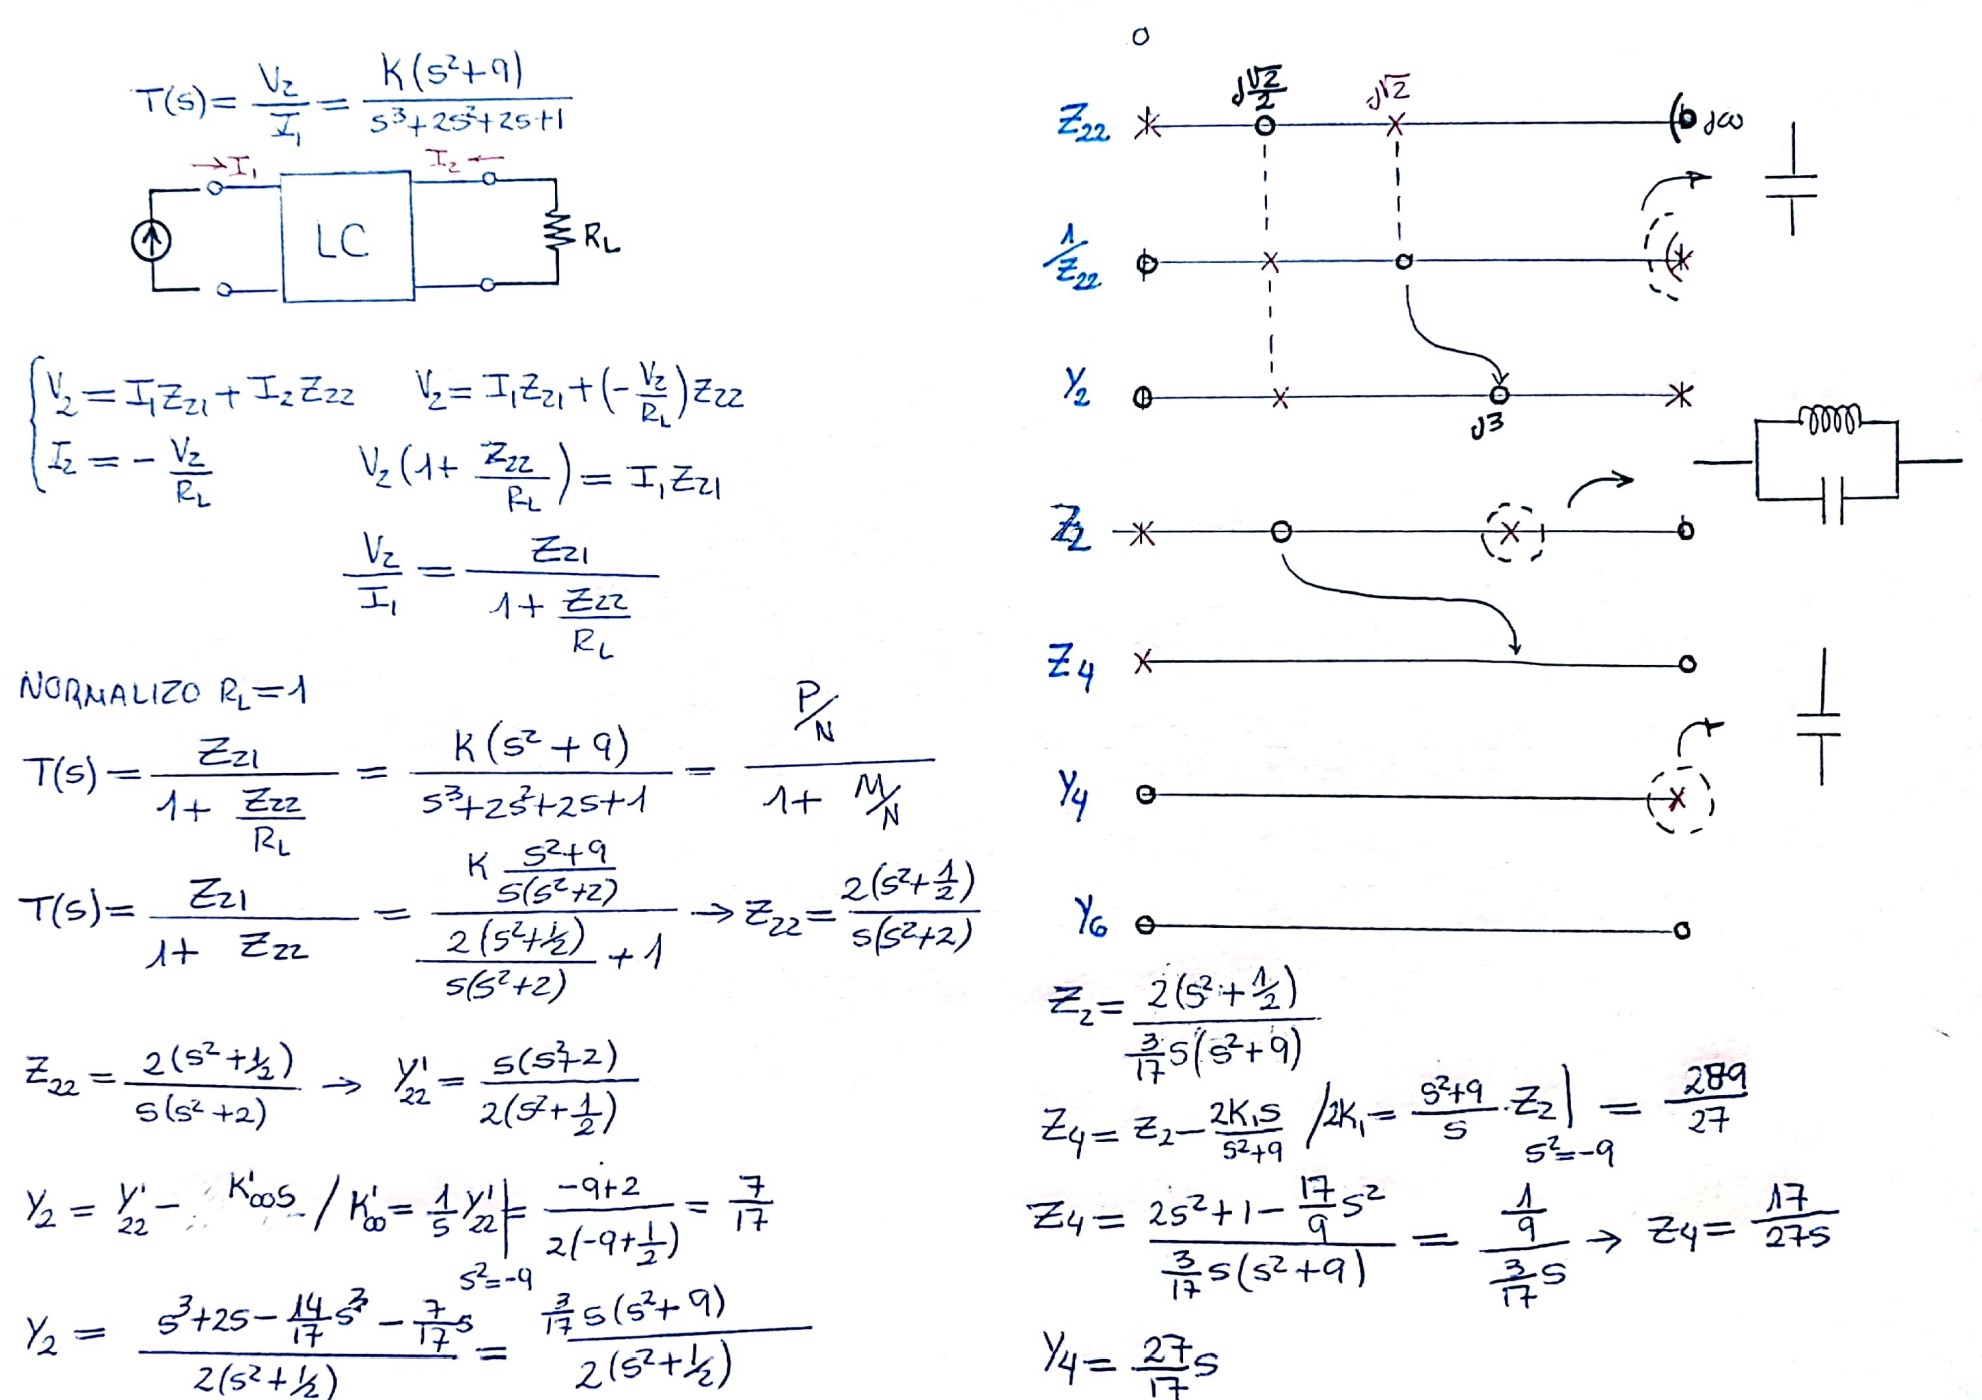 T(s) = V2/I1 = K(s²+9)/(s³+2s²+2s+1)
→I1 I2←
LC RL
{V2 = I1Z21 + I2Z22 V2 = I1Z21 + (-V2/RL)Z22
{I2 = -V2/RL V2(1 + Z22/RL) = I1Z21
V2/I1 = Z21/(1 + Z22/RL)
NORMALIZO RL=1
T(s) = Z21/(1 + Z22/RL) = K(s²+9)/(s³+2s²+2s+1) = (P/N)/(1 + M/N)
T(s) = Z21/(1 + Z22) = (K (s²+9)/(s(s²+2)))/(2(s²+½)/(s(s²+2)) + 1) → Z22 = 2(s²+½)/(s(s²+2))
Z22 = 2(s²+½)/(s(s²+2)) → Y'22 = s(s²+2)/(2(s²+½))
Y2 = Y'22 - K'∞s / K'∞ = 1/s Y'22|s²=-9 = (-9+2)/(2(-9+½)) = 7/17
Y2 = (s³+2s-14/17s³-7/17s)/(2(s²+½)) = (3/17 s(s²+9))/(2(s²+½))
j√2/2 j√2
Z22 j∞
1/Z22
Y2
j3
Z2
Z4
Y4
Y6
Z2 = 2(s²+½)/(3/17 s(s²+9))
Z4 = Z2 - 2K1s/(s²+9) /2K1 = (s²+9)/s · Z2|s²=-9 = 289/27
Z4 = (2s²+1-17/9s²)/(3/17 s(s²+9)) = (1/9)/(3/17 s) → Z4 = 17/27s
Y4 = 27/17 s